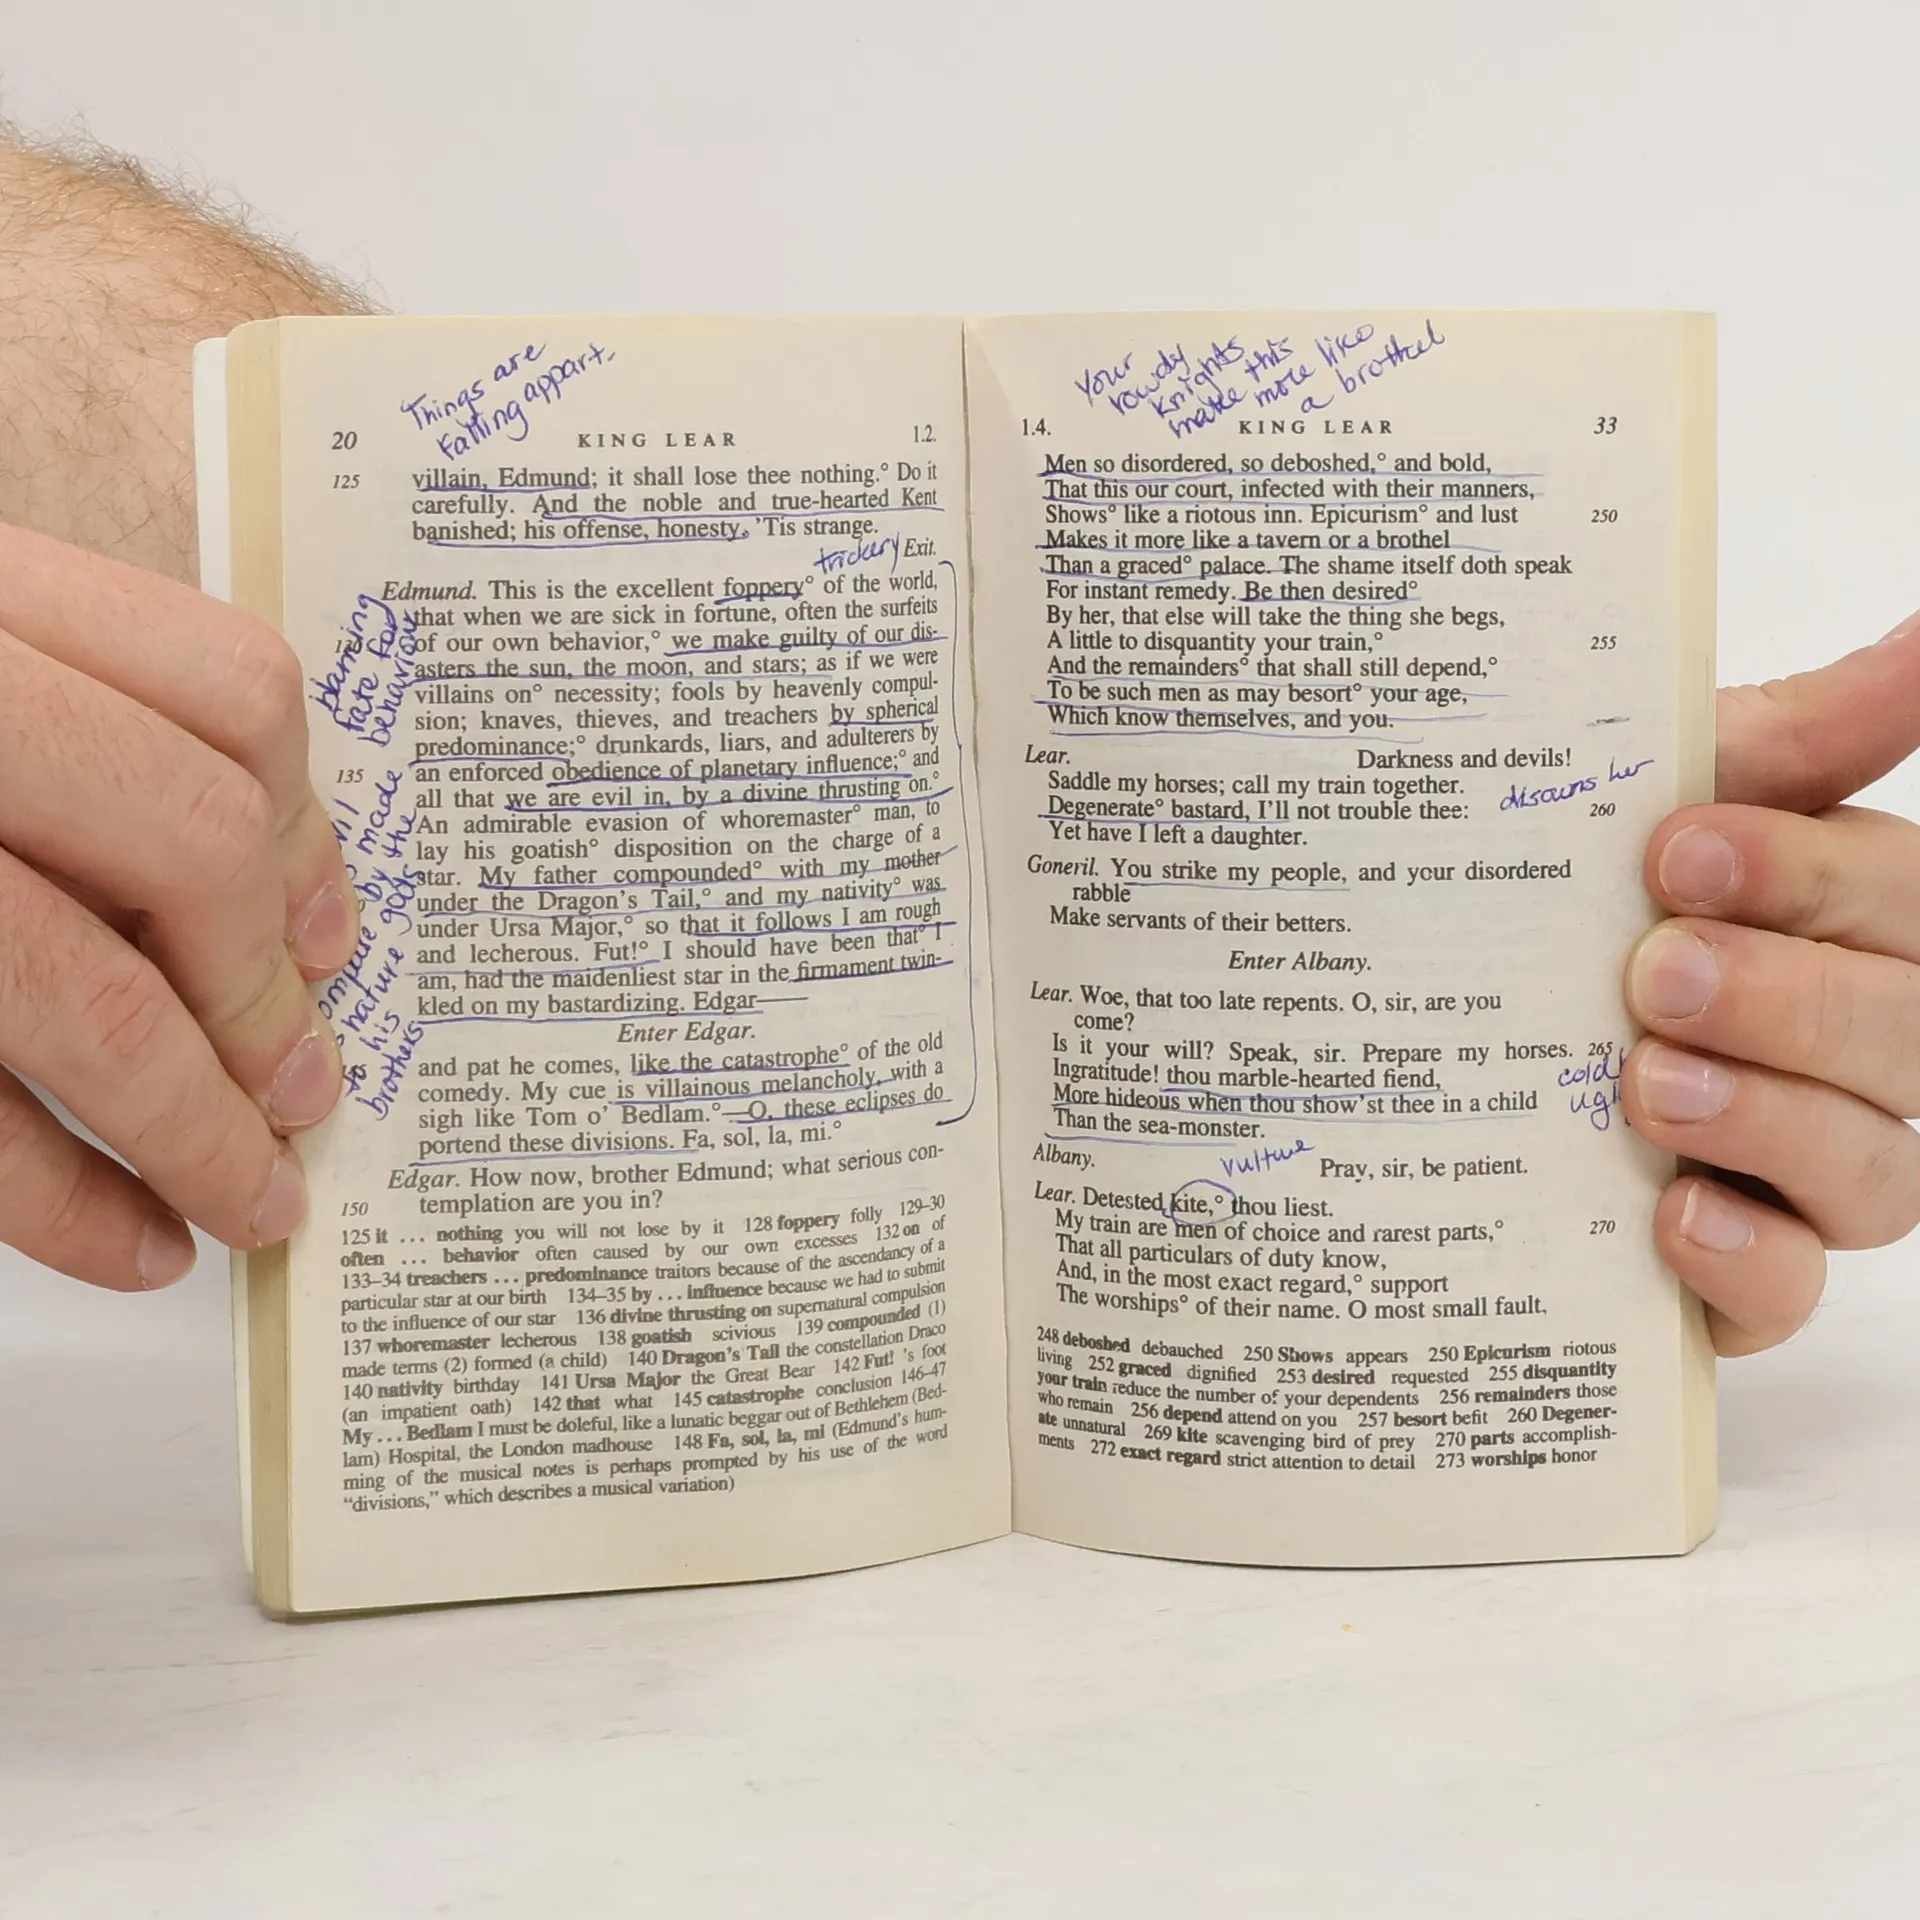 Things are
falling appart.
20 KING LEAR 1.2.
125 villain, Edmund; it shall lose thee nothing.° Do it
carefully. And the noble and true-hearted Kent
banished; his offense, honesty. 'Tis strange.
trickery Exit.
Edmund. This is the excellent foppery° of the world,
that when we are sick in fortune, often the surfeits
130 of our own behavior,° we make guilty of our dis-
asters the sun, the moon, and stars; as if we were
villains on° necessity; fools by heavenly compul-
sion; knaves, thieves, and treachers by spherical
predominance;° drunkards, liars, and adulterers by
135 an enforced obedience of planetary influence;° and
all that we are evil in, by a divine thrusting on.°
An admirable evasion of whoremaster° man, to
lay his goatish° disposition on the charge of a
star. My father compounded° with my mother
under the Dragon's Tail,° and my nativity° was
under Ursa Major,° so that it follows I am rough
and lecherous. Fut!° I should have been that° I
am, had the maidenliest star in the firmament twin-
kled on my bastardizing. Edgar——
Enter Edgar.
and pat he comes, like the catastrophe° of the old
comedy. My cue is villainous melancholy, with a
sigh like Tom o' Bedlam.°—O, these eclipses do
portend these divisions. Fa, sol, la, mi.°
Edgar. How now, brother Edmund; what serious con-
150 templation are you in?
blaming
fate for
behaviour
by made
nature gods the
to his
brothers
125 it ... nothing you will not lose by it 128 foppery folly 129–30
often ... behavior often caused by our own excesses 132 on of
133–34 treachers ... predominance traitors because of the ascendancy of a
particular star at our birth 134–35 by ... influence because we had to submit
to the influence of our star 136 divine thrusting on supernatural compulsion
137 whoremaster lecherous 138 goatish scivious 139 compounded (1)
made terms (2) formed (a child) 140 Dragon's Tail the constellation Draco
140 nativity birthday 141 Ursa Major the Great Bear 142 Fut! 's foot
(an impatient oath) 142 that what 145 catastrophe conclusion 146–47
My ... Bedlam I must be doleful, like a lunatic beggar out of Bethlehem (Bed-
lam) Hospital, the London madhouse 148 Fa, sol, la, mi (Edmund's hum-
ming of the musical notes is perhaps prompted by his use of the word
"divisions," which describes a musical variation)
Your
rowdy
knights
make this
more like
a brothel
1.4. KING LEAR 33
Men so disordered, so deboshed,° and bold,
That this our court, infected with their manners,
Shows° like a riotous inn. Epicurism° and lust 250
Makes it more like a tavern or a brothel
Than a graced° palace. The shame itself doth speak
For instant remedy. Be then desired°
By her, that else will take the thing she begs,
A little to disquantity your train,° 255
And the remainders° that shall still depend,°
To be such men as may besort° your age,
Which know themselves, and you.
Lear. Darkness and devils!
Saddle my horses; call my train together.
disowns her
Degenerate° bastard, I'll not trouble thee: 260
Yet have I left a daughter.
Goneril. You strike my people, and your disordered
rabble
Make servants of their betters.
Enter Albany.
Lear. Woe, that too late repents. O, sir, are you
come?
Is it your will? Speak, sir. Prepare my horses. 265
Ingratitude! thou marble-hearted fiend, cold
More hideous when thou show'st thee in a child
Than the sea-monster.
Albany. Pray, sir, be patient.
vulture
Lear. Detested kite,° thou liest.
My train are men of choice and rarest parts,° 270
That all particulars of duty know,
And, in the most exact regard,° support
The worships° of their name. O most small fault,
248 deboshed debauched 250 Shows appears 250 Epicurism riotous
living 252 graced dignified 253 desired requested 255 disquantity
your train reduce the number of your dependents 256 remainders those
who remain 256 depend attend on you 257 besort befit 260 Degener-
ate unnatural 269 kite scavenging bird of prey 270 parts accomplish-
ments 272 exact regard strict attention to detail 273 worships honor